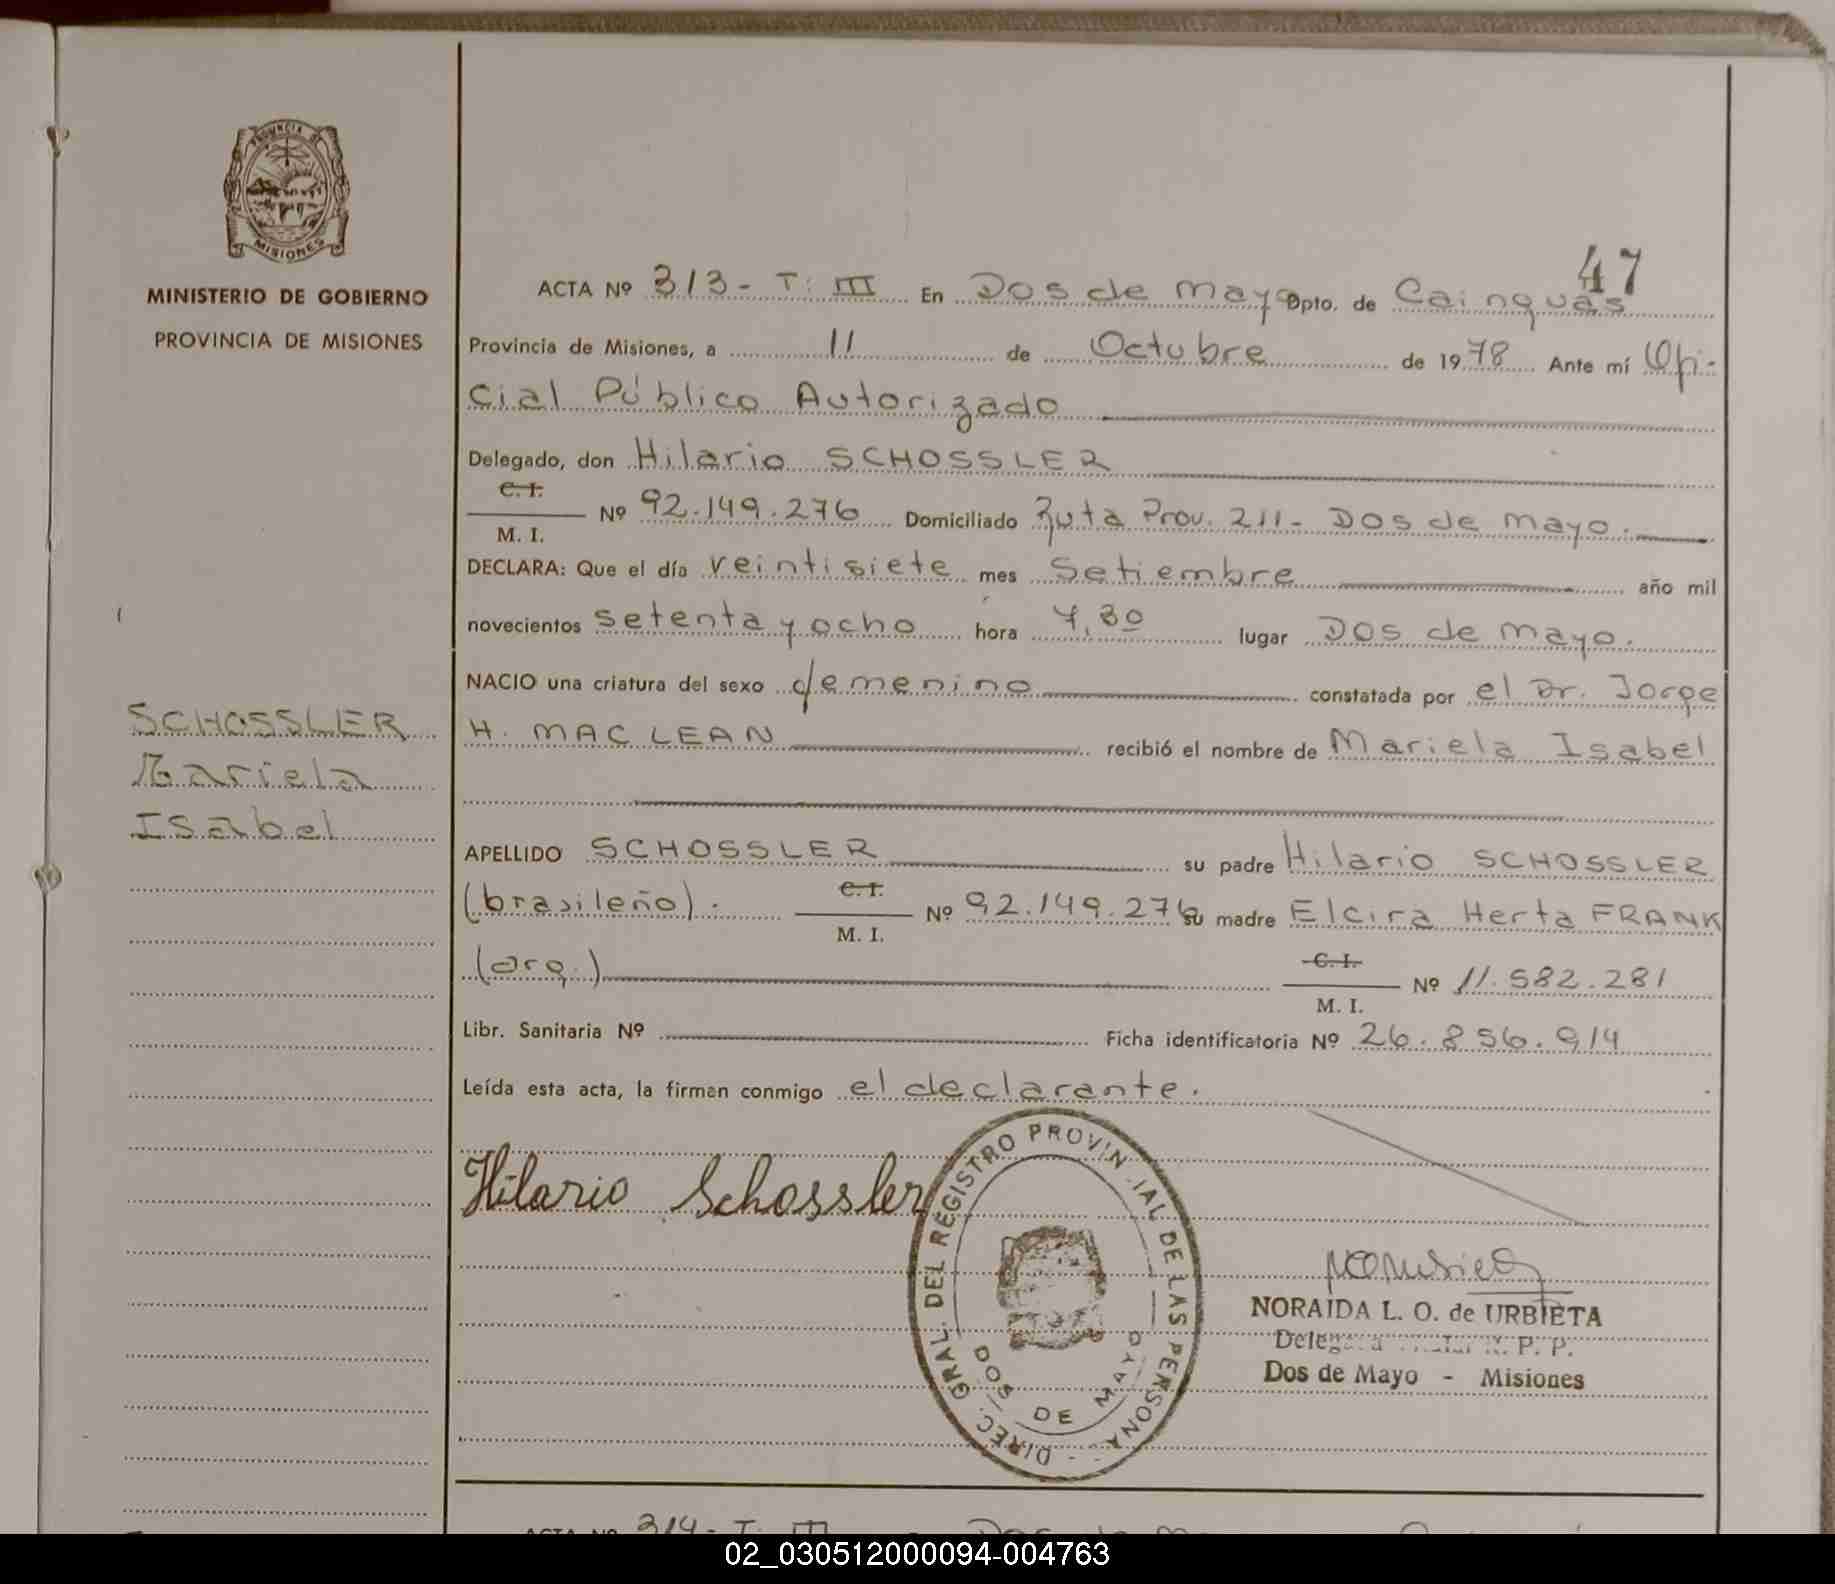 PROVINCIA DE
MISIONES
MINISTERIO DE GOBIERNO
PROVINCIA DE MISIONES
47
ACTA Nº 313 - T: III En Dos de Mayo Dpto. de Cainguás
Provincia de Misiones, a 11 de Octubre de 1978 Ante mí Ofi-
cial Público Autorizado
Delegado, don Hilario SCHOSSLER
C. I.
M. I. Nº 92.149.276 Domiciliado Ruta Prov. 211 - Dos de Mayo.
DECLARA: Que el día veintisiete mes Setiembre año mil
novecientos setenta y ocho hora 7,30 lugar Dos de Mayo.
NACIO una criatura del sexo femenino constatada por el Dr. Jorge
H. MAC LEAN recibió el nombre de Mariela Isabel
SCHOSSLER
Mariela
Isabel
APELLIDO SCHOSSLER su padre Hilario SCHOSSLER
(brasileño). C. I. M. I. Nº 92.149.276 su madre Elcira Herta FRANK
(arg.) C. I. M. I. Nº 11.582.281
Libr. Sanitaria Nº Ficha identificatoria Nº 26.856.914
Leída esta acta, la firman conmigo el declarante.
Hilario Schossler
DIREC. GRAL. DEL REGISTRO PROVINCIAL DE LAS PERSONAS
DOS DE MAYO
NORAIDA L. O. de URBIETA
R. P. P.
Dos de Mayo - Misiones
ACTA Nº 314 - T: III
02_030512000094-004763